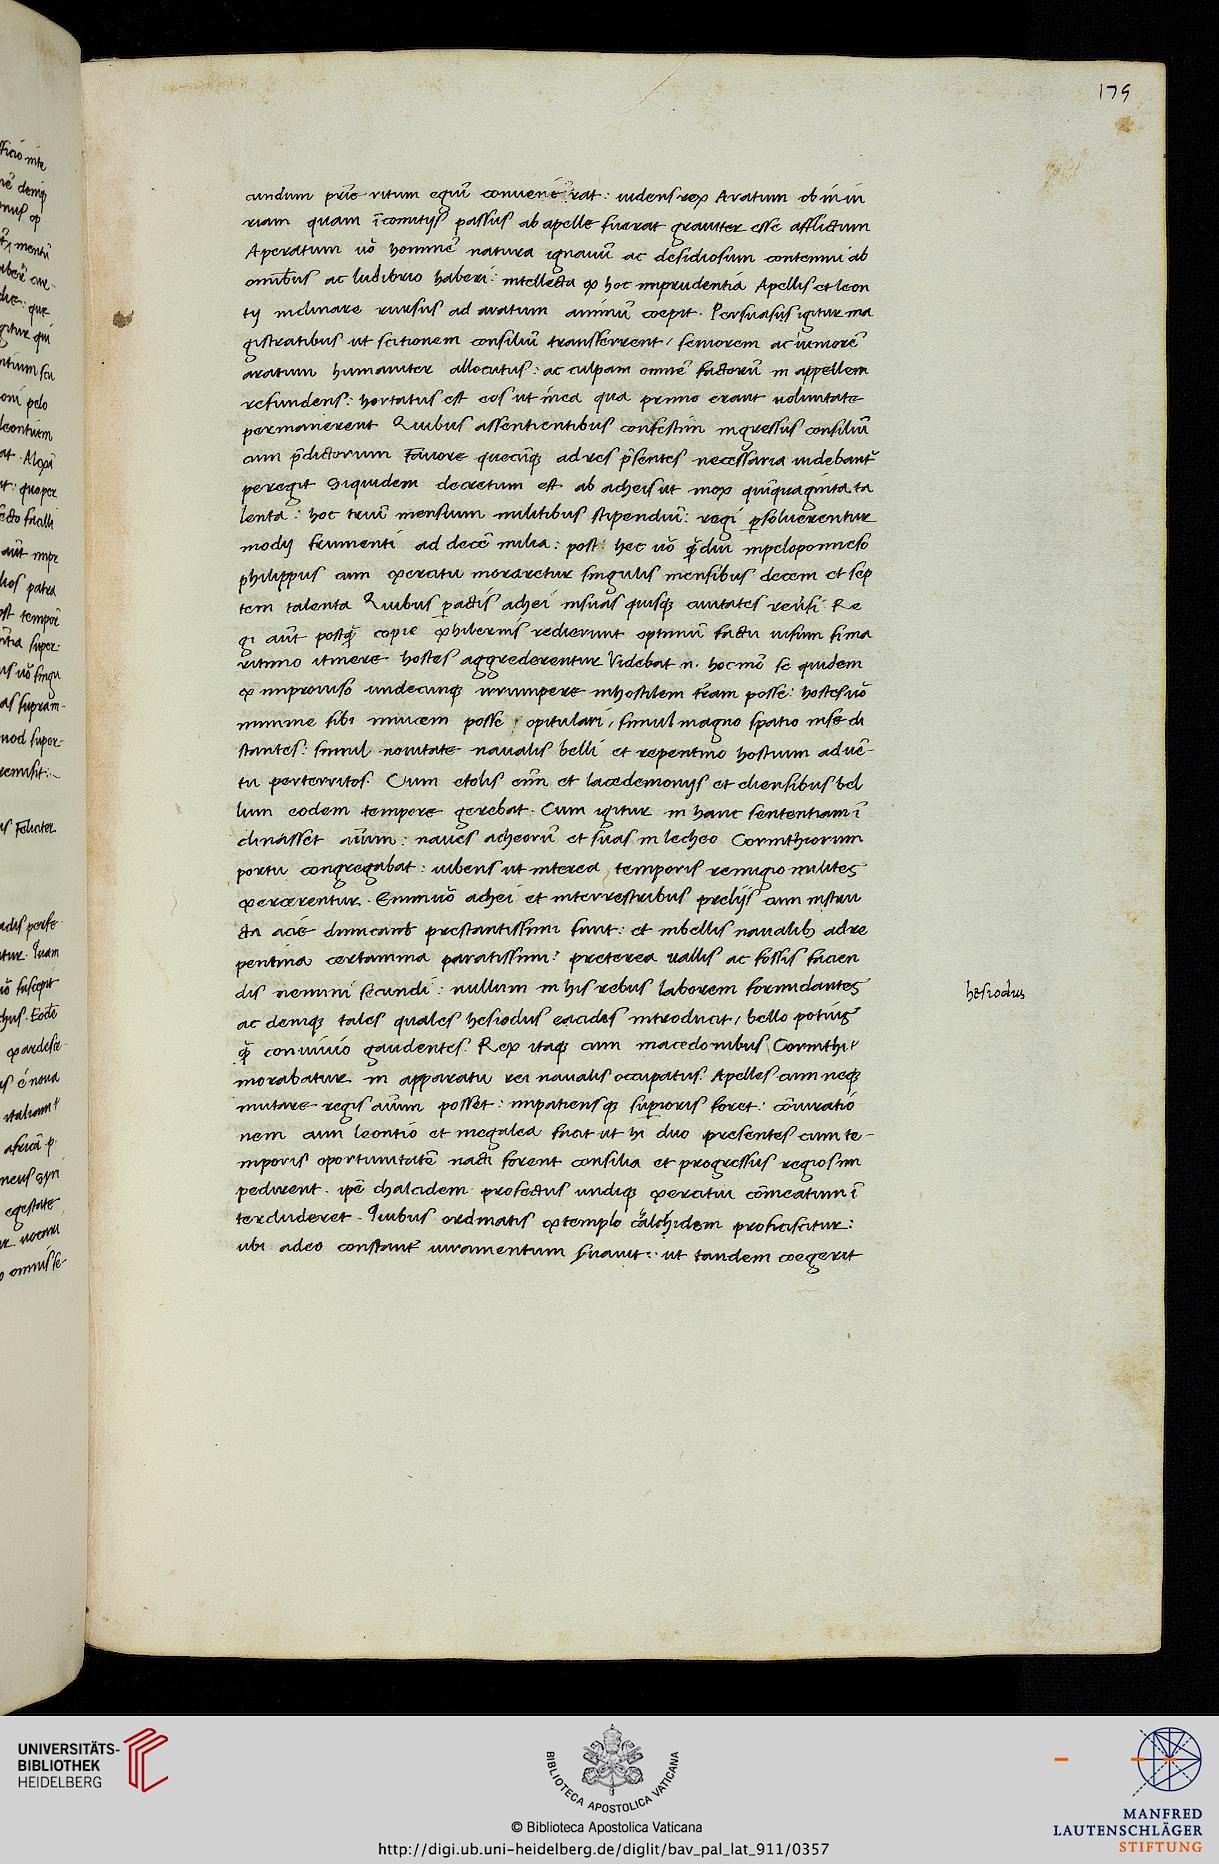 179
cundum prīe ritum egiū convenīe rat : iudens rex Aratum ob iniu
riam quam ī comitijs passus ab apelle fuerat graviter esse afflictum
Aperatum uō hominē natura ignauū ac desidiosum contemni ab
omībus ac ludibrio haberi : intellecta ꝙ hoc imprudentia Apellis et leon
tij inclinare rursus ad aratum animū coepit . Persuasus igitur ma
gistratibus ut scitionem consiliū transferrent / seniorem ac iuniorē
aratum humaniter allocutus : ac culpam omnē factorū in appellem
refundens : hortatus est eos ut in ea qua primo erant uoluntate
permanerent Quibus assentientibus confestim ingressus consiliū
cum p̄dictorum favore quecūqꝫ ad res p̄sentes necessaria uidebant᷑
peregit Siquidem decretum est ab acheis ut mox quīquaginta ta
lenta : hoc triū mensium militibus stipendiū : regi ꝑsoluerentur
modij frumenti ad decē milia : post hec uō q̄diu in peloponneso
philippus cum exercitu moraretur singulis mensibus decem et sep
tem talenta Quibus pactis achei in suas quisqꝫ ciuitates reūsi Re
gi aūt postq̄ copie ex hibernis redierunt optimū factu uisum si ma
ritimo itinere hostes aggrederentur Videbat n. hoc mō se quidem
ex improuiso undecunqꝫ irrumpere in hostilem t̄ram posse : hostes uō
minime sibi inuicem posse opitulari / simul magno spatio inse di
stantes : simul nouitate naualis belli et repentino hostium aduē-
tu perterritos . Cum etolis enī et lacedemonijs et eliensibus bel
lum eodem tempore gerebat . Cum igitur in hanc sententiam ī
clinasset aīum : naues acheorū et suas in lecheo Corinthiorum
portu congregabat : iubens ut interea temporis remigio milites
exercerentur . Enimuō achei et in terrestribus prelijs cum instru
cta acie dimicant prestantissimi sunt : et in bellis naualibꝫ ad re
pentina certamina paratissimi : preterea uallis ac fossis facien
dis nemini secundi : nullum in his rebus laborem formidantes
ac deniqꝫ tales quales hesiodus eacides introducit / bello potius
q̄ conuiuio gaudentes . Rex itaqꝫ cum macedonibus Corinthi
morabatur in apparatu rei naualis occupatus . Apelles cum neqꝫ
mutare regis aīum posset : impatiensqꝫ suꝑioris foret : cōiuratio
nem cum leontio et megalea facit ut hi duo presentes cum te-
mporis oportunitatē nacti forent consilia et progressus regios im
pedirent . ipē chalcidem profectus undiqꝫ exercitui cōmeatum ī
tercluderet . Quibus ordinatis extemplo calchidem proficiscitur :
ubi adeo constant᷑ iuramentum suauit : ut tandem coegerit
hesiodus
UNIVERSITÄTS-
BIBLIOTHEK
HEIDELBERG
BIBLIOTECA APOSTOLICA VATICANA
© Biblioteca Apostolica Vaticana
http://digi.ub.uni-heidelberg.de/diglit/bav_pal_lat_911/0357
MANFRED
LAUTENSCHLÄGER
STIFTUNG